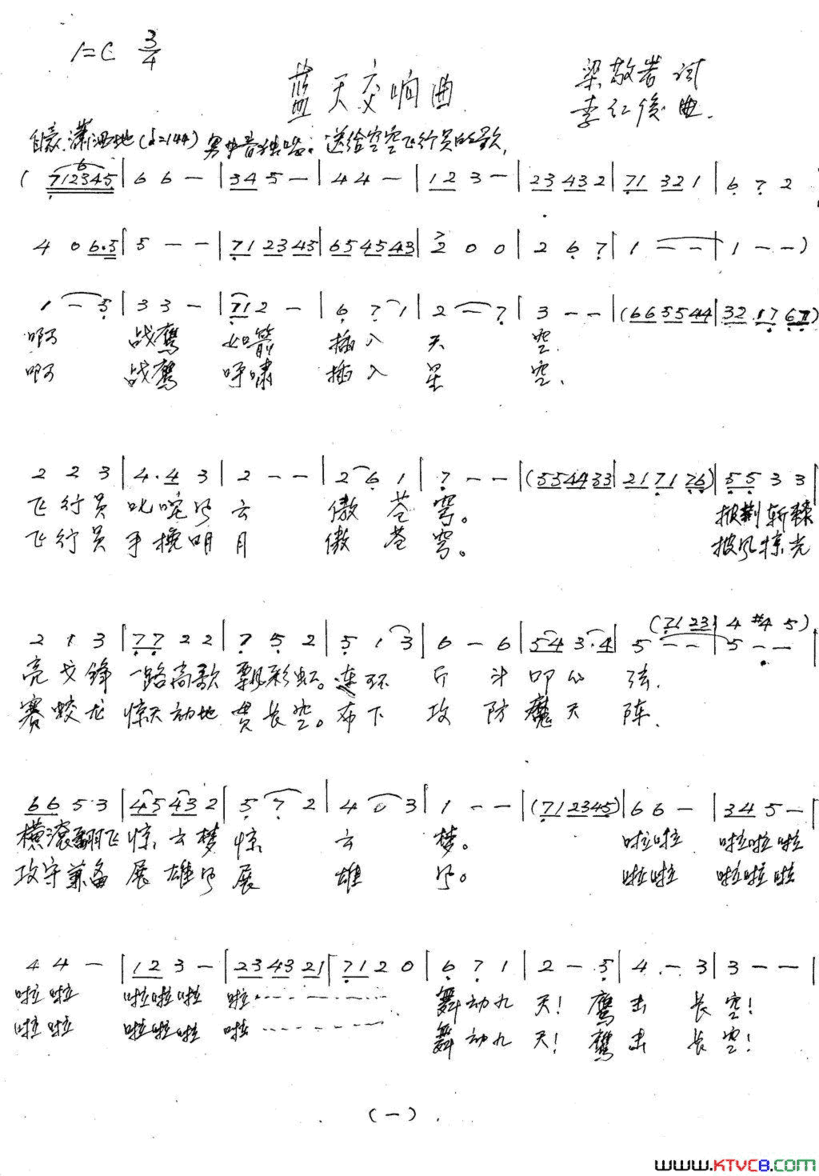 1=C 3/4
蓝天交响曲
梁敬岩 词
李红俊 曲
自豪、潇洒地(♩=144) 男中音独唱。送给空军飞行员的歌,
( 712345 | 6 6 - | 34 5 - | 4 4 - | 12 3 - | 23 43 2 | 71 32 1 | 6 7 2
4 0 6.5 | 5 - - | 71 23 43 | 65 45 43 | 2 0 0 | 2 6 7 | 1 - - | 1 - - )
1 - 5 | 3 3 - | 71 2 - | 6 7 1 | 2 - 7 | 3 - - | (66 55 44 | 32 .1 7 67)
啊 战鹰 如箭 插入 天 空.
啊 战鹰 呼啸 插入 星 空.
2 2 3 | 4 . 4 3 | 2 - - | 2 6 1 | 7 - - | (55 44 33 | 21 71 76) | 5 5 3 3 |
飞行员 叱咤风云 傲苍穹。 披荆斩棘
飞行员 手挽明月 傲苍穹。 披风掠光
(71 23 | 4 #4 5)
2 1 3 | 77 2 2 | 7 5 2 | 5 1 3 | 6 - 6 | 54 3.4 | 5 - - | 5 - - |
亮戈锋 一路高歌 飘彩虹。连环 斤斗 叩心 弦.
赛蛟龙 惊天动地 贯长空。布下 攻防 魔天 阵.
66 5 3 | 45 43 2 | 5 7 2 | 4 0 3 | 1 - - | (712345) | 6 6 - | 34 5 - |
横滚翻飞 惊云梦 惊 云 梦。 啦啦 啦啦啦
攻守兼备 展雄风 展 雄 风。 啦啦 啦啦啦
4 4 - | 12 3 - | 23 43 21 | 71 2 0 | 6 7 1 | 2 - 5 | 4 . - 3 | 3 - - |
啦啦 啦啦啦 啦............ 舞动九天!鹰击 长空!
啦啦 啦啦啦 啦............ 舞动九天!鹰击 长空!
(一)
www.KTVC8.com